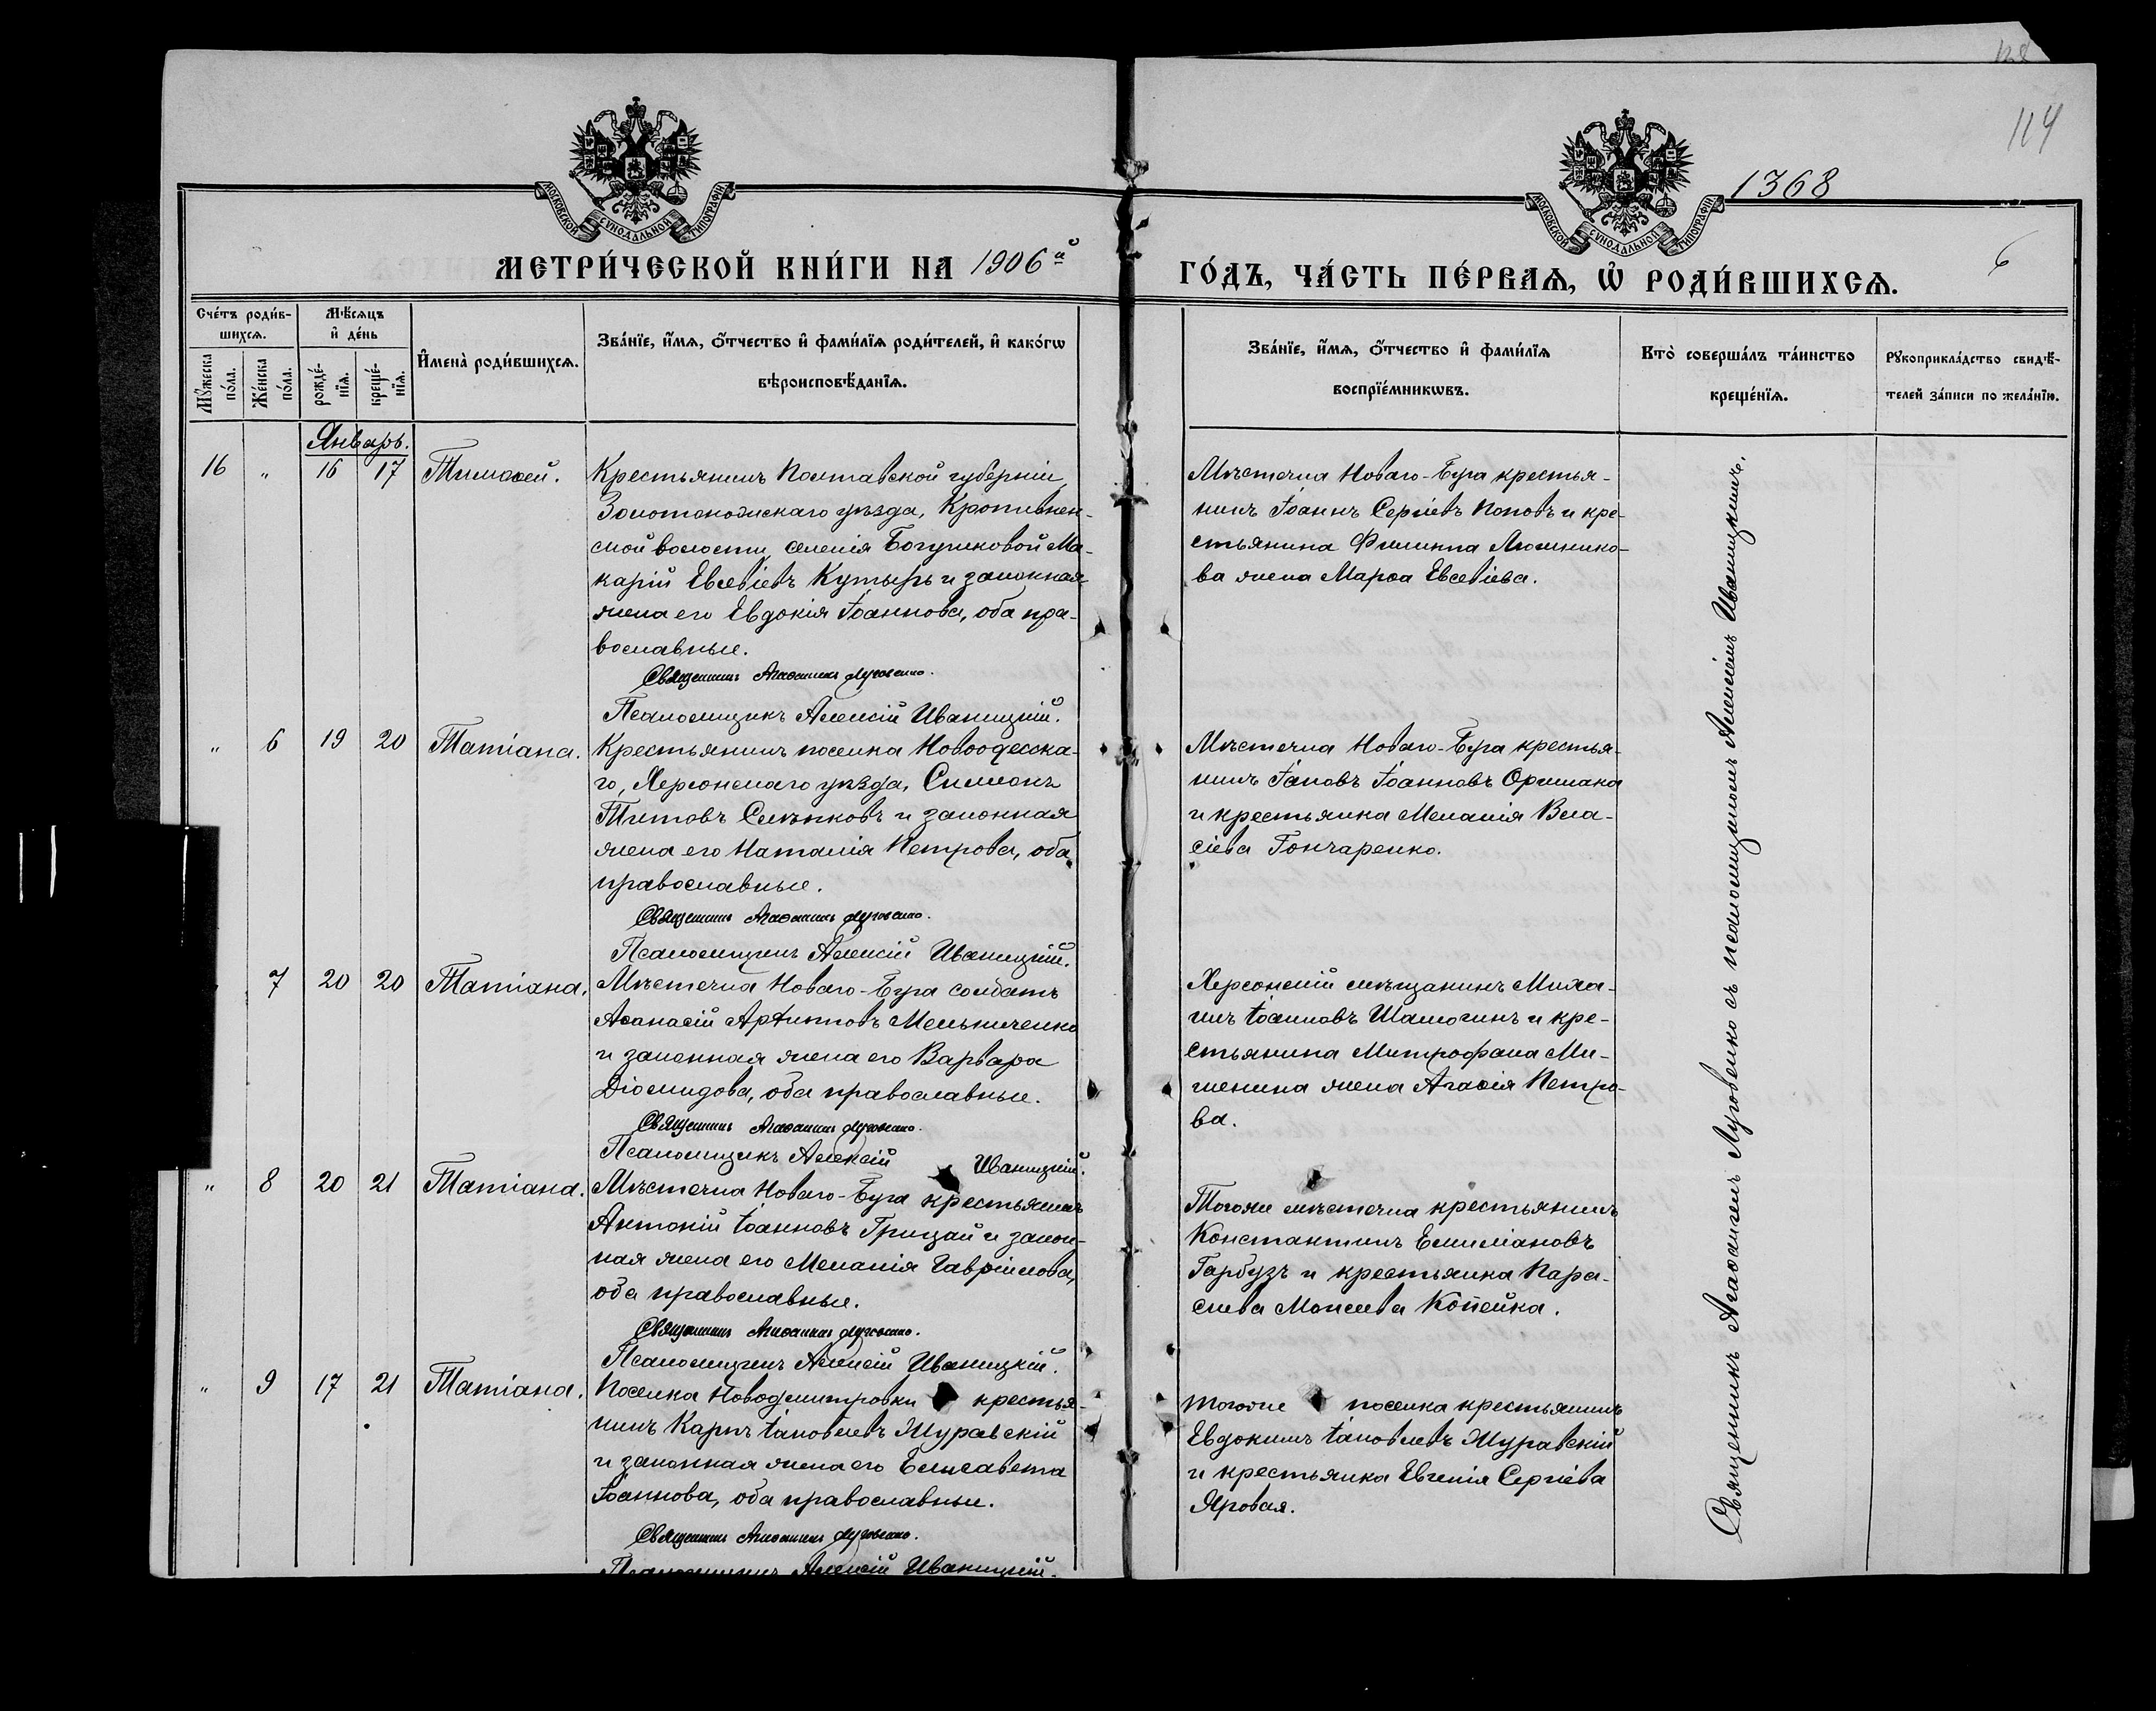 128
114
1368
6
МОСКОВСКОЙ СѴНОДАЛЬНОЙ ТИПОГРАФІИ
МОСКОВСКОЙ СѴНОДАЛЬНОЙ ТИПОГРАФІИ
МЕТРИ́ЧЕСКОЙ КНИ́ГИ НА 1906й
ГО́ДЪ, ЧА́СТЬ ПЕ́РВАѦ, Ѡ҆ РОДИ́ВШИХСѦ.
Сче́тъ роди́в-
шихсѧ.
Мꙋ́жеска по́ла.
Же́нска по́ла.
Мѣ́сѧцъ
и҆ де́нь
рожде́-
нїѧ.
креще́-
нїѧ.
И҆мена̀ роди́вшихсѧ.
Зва́нїе, и҆́мѧ, ѻ҆́тчество и҆ фами́лїѧ роди́телей, и҆ како́гѡ
вѣроисповѣ́данїѧ.
Зва́нїе, и҆́мѧ, ѻ҆́тчество и҆ фами́лїѧ
воспрїе́мникѡвъ.
Кто̀ соверша́лъ та́инство
креще́нїѧ.
Рꙋкоприкла́дство свидѣ́-
телей за́писи по жела́нїю.
Январь.
16 " 16 17 Тимоѳей.
Крестьянинъ Полтавской губерніи,
Золотоношскаго уѣзда, Кропивен-
ской волости, селенія Богушковой Ма-
карій Евсевіевъ Кутырь и законная
жена его Евдокія Іоаннова, оба пра-
вославные.
Священникъ Агаѳангелъ Луговенко.
Псаломщикъ Алексій Иваницкій.
Мѣстечка Новаго-Буга крестья-
нинъ Іоаннъ Сергіевъ Поповъ и кре-
стьянина Филиппа
ва жена Марѳа Евсевіева.
" 6 19 20 Татіана.
Крестьянинъ поселка Новоодесска-
го, Херсонскаго уѣзда, Симеонъ
Титовъ и законная
жена его Наталія Петрова, оба
православные.
Священникъ Агаѳангелъ Луговенко.
Псаломщикъ Алексій Иваницкій.
Мѣстечка Новаго-Буга крестья-
нинъ Іаковъ Іоанновъ
и крестьянка Меланія Вла-
сіева Гончаренко.
7 20 20 Татіана.
Мѣстечка Новаго-Буга солдатъ
Аѳанасій Мельниченко
и законная жена его Варвара
Діомидова, оба православные.
Священникъ Агаѳангелъ Луговенко.
Псаломщикъ Алексій Иваницкій.
Херсонскій мѣщанинъ Миха-
илъ Іоанновъ Шамогинъ и кре-
стьянина Митрофана Ми-
шенина жена Агаѳія Петро-
ва.
" 8 20 21 Татіана.
Мѣстечка Новаго-Буга крестьянинъ
Антоній Іоанновъ Грицай и закон-
ная жена его Меланія Гавріилова,
оба православные.
Священникъ Агаѳангелъ Луговенко.
Псаломщикъ Алексій Иваницкій.
Тогоже мѣстечка крестьянинъ
Константинъ Емиліановъ
Гарбузъ и крестьянка Пара-
скева Моисеева Копейка.
" 9 17 21 Татіана.
Поселка Новодмитровки крестья-
нинъ Карпъ Іаковлевъ Журавскій
и законная жена его Елисавета
Іоаннова, оба православные.
Священникъ Агаѳангелъ Луговенко.
Псаломщикъ Алексій Иваницкій.
тогоже поселка крестьянинъ
Евдокимъ Іаковлевъ Журавскій
и крестьянка Евгенія Сергіева
Яровая.
Священникъ Агаѳангелъ Луговенко съ псаломщикомъ Алексіемъ Иваницкимъ.